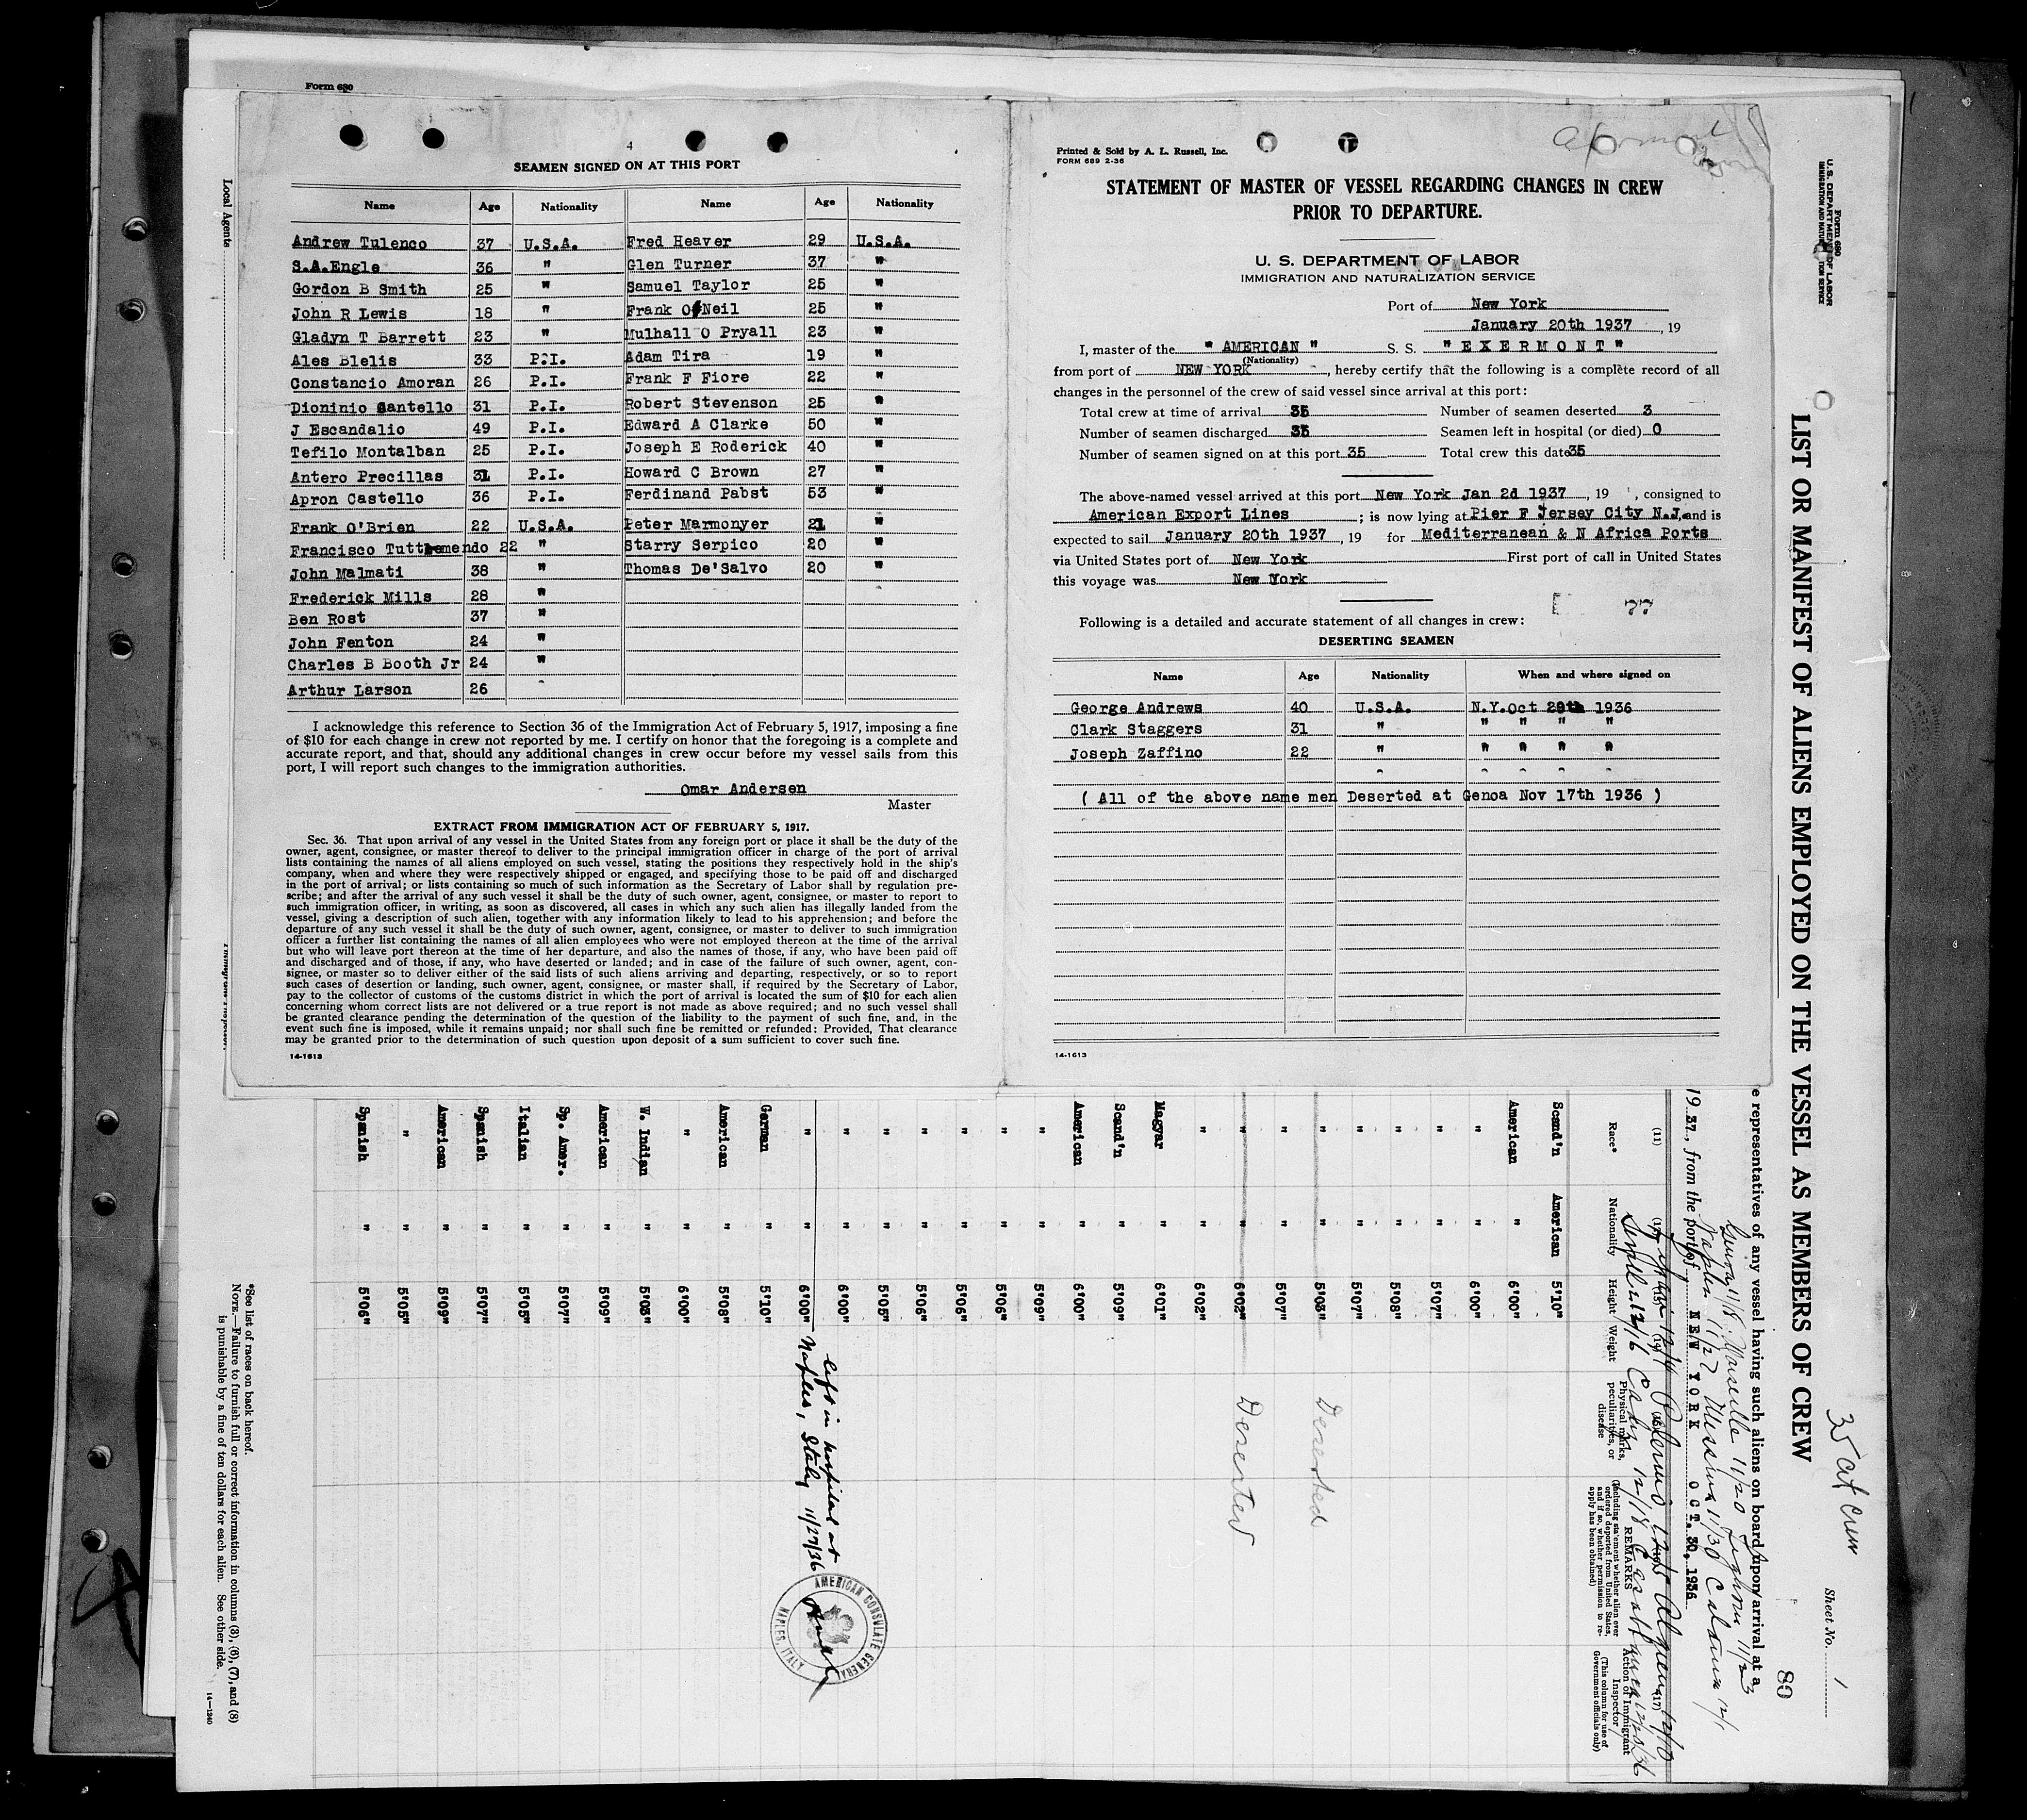 Form 680
Local Agents
4
SEAMEN SIGNED ON AT THIS PORT
Name Age Nationality Name Age Nationality
Andrew Tulenco 37 U.S.A. Fred Heaver 29 U.S.A.
S.A.Engle 36 " Glen Turner 37 "
Gordon B Smith 25 " Samuel Taylor 25 "
John R Lewis 18 " Frank O'Neil 25 "
Gladyn T Barrett 23 " Mulhall O Pryall 23 "
Ales Blelis 33 P.I. Adam Tira 19 "
Constancio Amoran 26 P.I. Frank F Fiore 22 "
Dioninio Santello 31 P.I. Robert Stevenson 25 "
J Escandalio 49 P.I. Edward A Clarke 50 "
Tefilo Montalban 25 P.I. Joseph E Roderick 40 "
Antero Precillas 31 P.I. Howard C Brown 27 "
Apron Castello 36 P.I. Ferdinand Pabst 53 "
Frank O'Brien 22 U.S.A. Peter Marmonyer 21 "
Francisco 22 " Starry Serpico 20 "
John Malmati 38 " Thomas De'Salvo 20 "
Frederick Mills 28 "
Ben Rost 37 "
John Fenton 24 "
Charles B Booth Jr 24 "
Arthur Larson 26
I acknowledge this reference to Section 36 of the Immigration Act of February 5, 1917, imposing a fine
of $10 for each change in crew not reported by me. I certify on honor that the foregoing is a complete and
accurate report, and that, should any additional changes in crew occur before my vessel sails from this
port, I will report such changes to the immigration authorities.
Omar Andersen
Master
EXTRACT FROM IMMIGRATION ACT OF FEBRUARY 5, 1917.
Sec. 36. That upon arrival of any vessel in the United States from any foreign port or place it shall be the duty of the
owner, agent, consignee, or master thereof to deliver to the principal immigration officer in charge of the port of arrival
lists containing the names of all aliens employed on such vessel, stating the positions they respectively hold in the ship's
company, when and where they were respectively shipped or engaged, and specifying those to be paid off and discharged
in the port of arrival; or lists containing so much of such information as the Secretary of Labor shall by regulation pre-
scribe; and after the arrival of any such vessel it shall be the duty of such owner, agent, consignee, or master to report to
such immigration officer, in writing, as soon as discovered, all cases in which any such alien has illegally landed from the
vessel, giving a description of such alien, together with any information likely to lead to his apprehension; and before the
departure of any such vessel it shall be the duty of such owner, agent, consignee, or master to deliver to such immigration
officer a further list containing the names of all alien employees who were not employed thereon at the time of the arrival
but who will leave port thereon at the time of her departure, and also the names of those, if any, who have been paid off
and discharged and of those, if any, who have deserted or landed; and in case of the failure of such owner, agent, con-
signee, or master so to deliver either of the said lists of such aliens arriving and departing, respectively, or so to report
such cases of desertion or landing, such owner, agent, consignee, or master shall, if required by the Secretary of Labor,
pay to the collector of customs of the customs district in which the port of arrival is located the sum of $10 for each alien
concerning whom correct lists are not delivered or a true report is not made as above required; and no such vessel shall
be granted clearance pending the determination of the question of the liability to the payment of such fine, and, in the
event such fine is imposed, while it remains unpaid; nor shall such fine be remitted or refunded: Provided, That clearance
may be granted prior to the determination of such question upon deposit of a sum sufficient to cover such fine.
14-1613
Printed & Sold by A. L. Russell, Inc.
FORM 689 2-36
STATEMENT OF MASTER OF VESSEL REGARDING CHANGES IN CREW
PRIOR TO DEPARTURE.
U. S. DEPARTMENT OF LABOR
IMMIGRATION AND NATURALIZATION SERVICE
Port of New York
January 20th 1937, 19
I, master of the " AMERICAN " S. S. " E X E R M O N T "
(Nationality)
from port of NEW YORK, hereby certify that the following is a complete record of all
changes in the personnel of the crew of said vessel since arrival at this port:
Total crew at time of arrival 35 Number of seamen deserted 3
Number of seamen discharged 35 Seamen left in hospital (or died) 0
Number of seamen signed on at this port 35 Total crew this date 35
The above-named vessel arrived at this port New York Jan 2d 1937, 19 , consigned to
American Export Lines; is now lying at Pier F Jersey City N.J. and is
expected to sail January 20th 1937, 19 for Mediterranean & N Africa Ports
via United States port of New York First port of call in United States
this voyage was New York
77
Following is a detailed and accurate statement of all changes in crew:
DESERTING SEAMEN
Name Age Nationality When and where signed on
George Andrews 40 U.S.A. N.Y. Oct 29th 1936
Clark Staggers 31 " " " " "
Joseph Zaffino 22 " " " " "
( All of the above name men Deserted at Genoa Nov 17th 1936 )
14-1613
Form 680
U. S. DEPARTMENT OF LABOR
IMMIGRATION AND NATURALIZATION SERVICE
LIST OR MANIFEST OF ALIENS EMPLOYED ON THE VESSEL AS MEMBERS OF CREW
35 at crew
Sheet No. 1
80
e representatives of any vessel having such aliens on board upon arrival at a
Genoa 11/18 Marseille 11/20 Leghorn 11/23
Naples 11/27 Messina 11/30 Catania 12/1
19 37, from the port of NEW YORK OCT. 30, 1936
Palermo Algiers 12/10
Cadiz 12/18 Casablanca 12/20/36
(11) (17)
Race* Nationality Height Weight Physical marks, peculiarities, or disease
REMARKS
(Including statement whether alien ever ordered deported from United States, and if so, whether permission to re-apply has been obtained)
Action of Immigrant Inspector
(This column for use of Government officials only)
Scand'n American 5'10"
American " 6'00"
" " 6'00"
" " 5'07"
" " 5'08"
" " 5'07"
" " 5'03" Deserted
" " 5'07"
" " 6'02" Deserted
" " 6'02"
Magyar " 6'01"
Scand'n " 5'09"
American " 6'00"
" " 5'09"
" " 5'06"
" " 5'06"
" " 5'06"
" " 5'05"
" " 6'00"
" " 6'00" Left in hospital at Naples, Italy 11/27/36
AMERICAN CONSULATE GENERAL
NAPLES, ITALY
German " 5'10"
American " 5'08"
" " 6'00"
W. Indian " 5'03"
American " 5'09"
Sp. Amer. " 5'07"
Italian " 5'05"
Spanish " 5'07"
American " 5'09"
" " 5'05"
Spanish " 5'06"
*See list of races on back hereof.
NOTE.—Failure to furnish full or correct information in columns (3), (6), (7), and (8)
is punishable by a fine of ten dollars for each alien. See other side.
14—1240